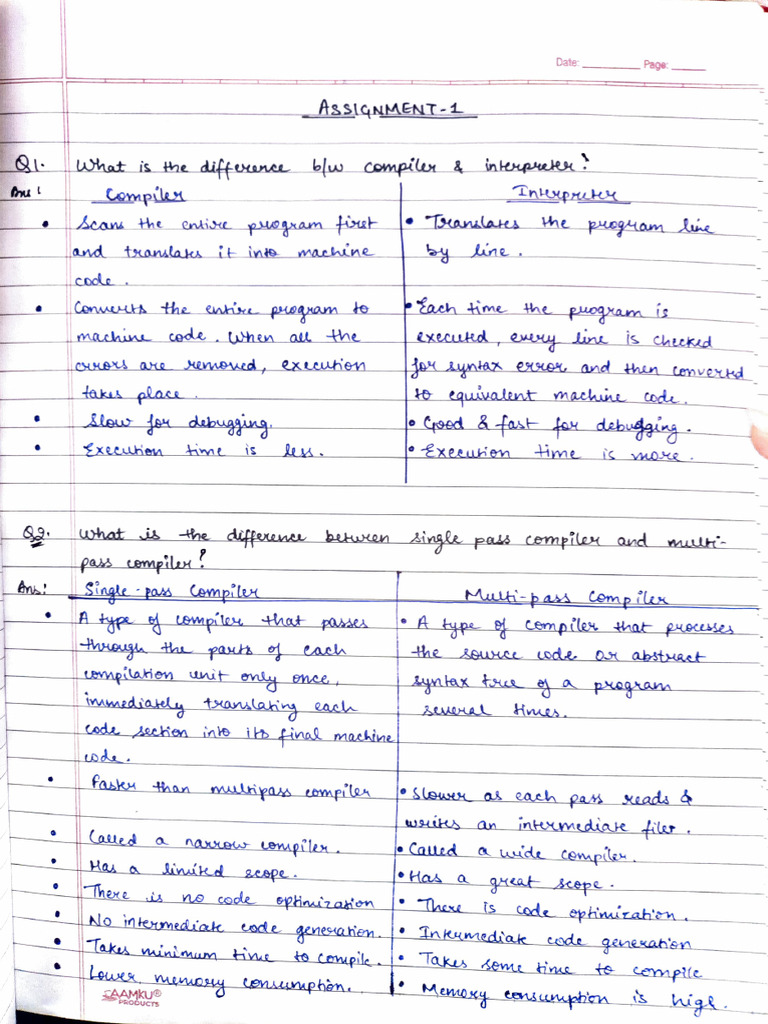 Date: ________ Page: _____
ASSIGNMENT-1
Q1. What is the difference b/w compiler & interpreter?
Ans:
Compiler
• Scans the entire program first
and translates it into machine
code.
• Converts the entire program to
machine code. When all the
errors are removed, execution
takes place.
• Slow for debugging.
• Execution time is less.
Interpreter
• Translates the program line
by line.
• Each time the program is
executed, every line is checked
for syntax error and then converted
to equivalent machine code.
• Good & fast for debugging.
• Execution time is more.
Q2. What is the difference between single pass compiler and multi-
pass compiler?
Ans:
Single-pass Compiler
• A type of compiler that passes
through the parts of each
compilation unit only once,
immediately translating each
code section into its final machine
code.
• Faster than multipass compiler
• Called a narrow compiler.
• Has a limited scope.
• There is no code optimization
• No intermediate code generation.
• Takes minimum time to compile.
• Lower memory consumption.
Multi-pass Compiler
• A type of compiler that processes
the source code or abstract
syntax tree of a program
several times.
• Slower as each pass reads &
writes an intermediate file.
• Called a wide compiler.
• Has a great scope.
• There is code optimization.
• Intermediate code generation
• Takes some time to compile
• Memory consumption is high.
AAMKU®
PRODUCTS